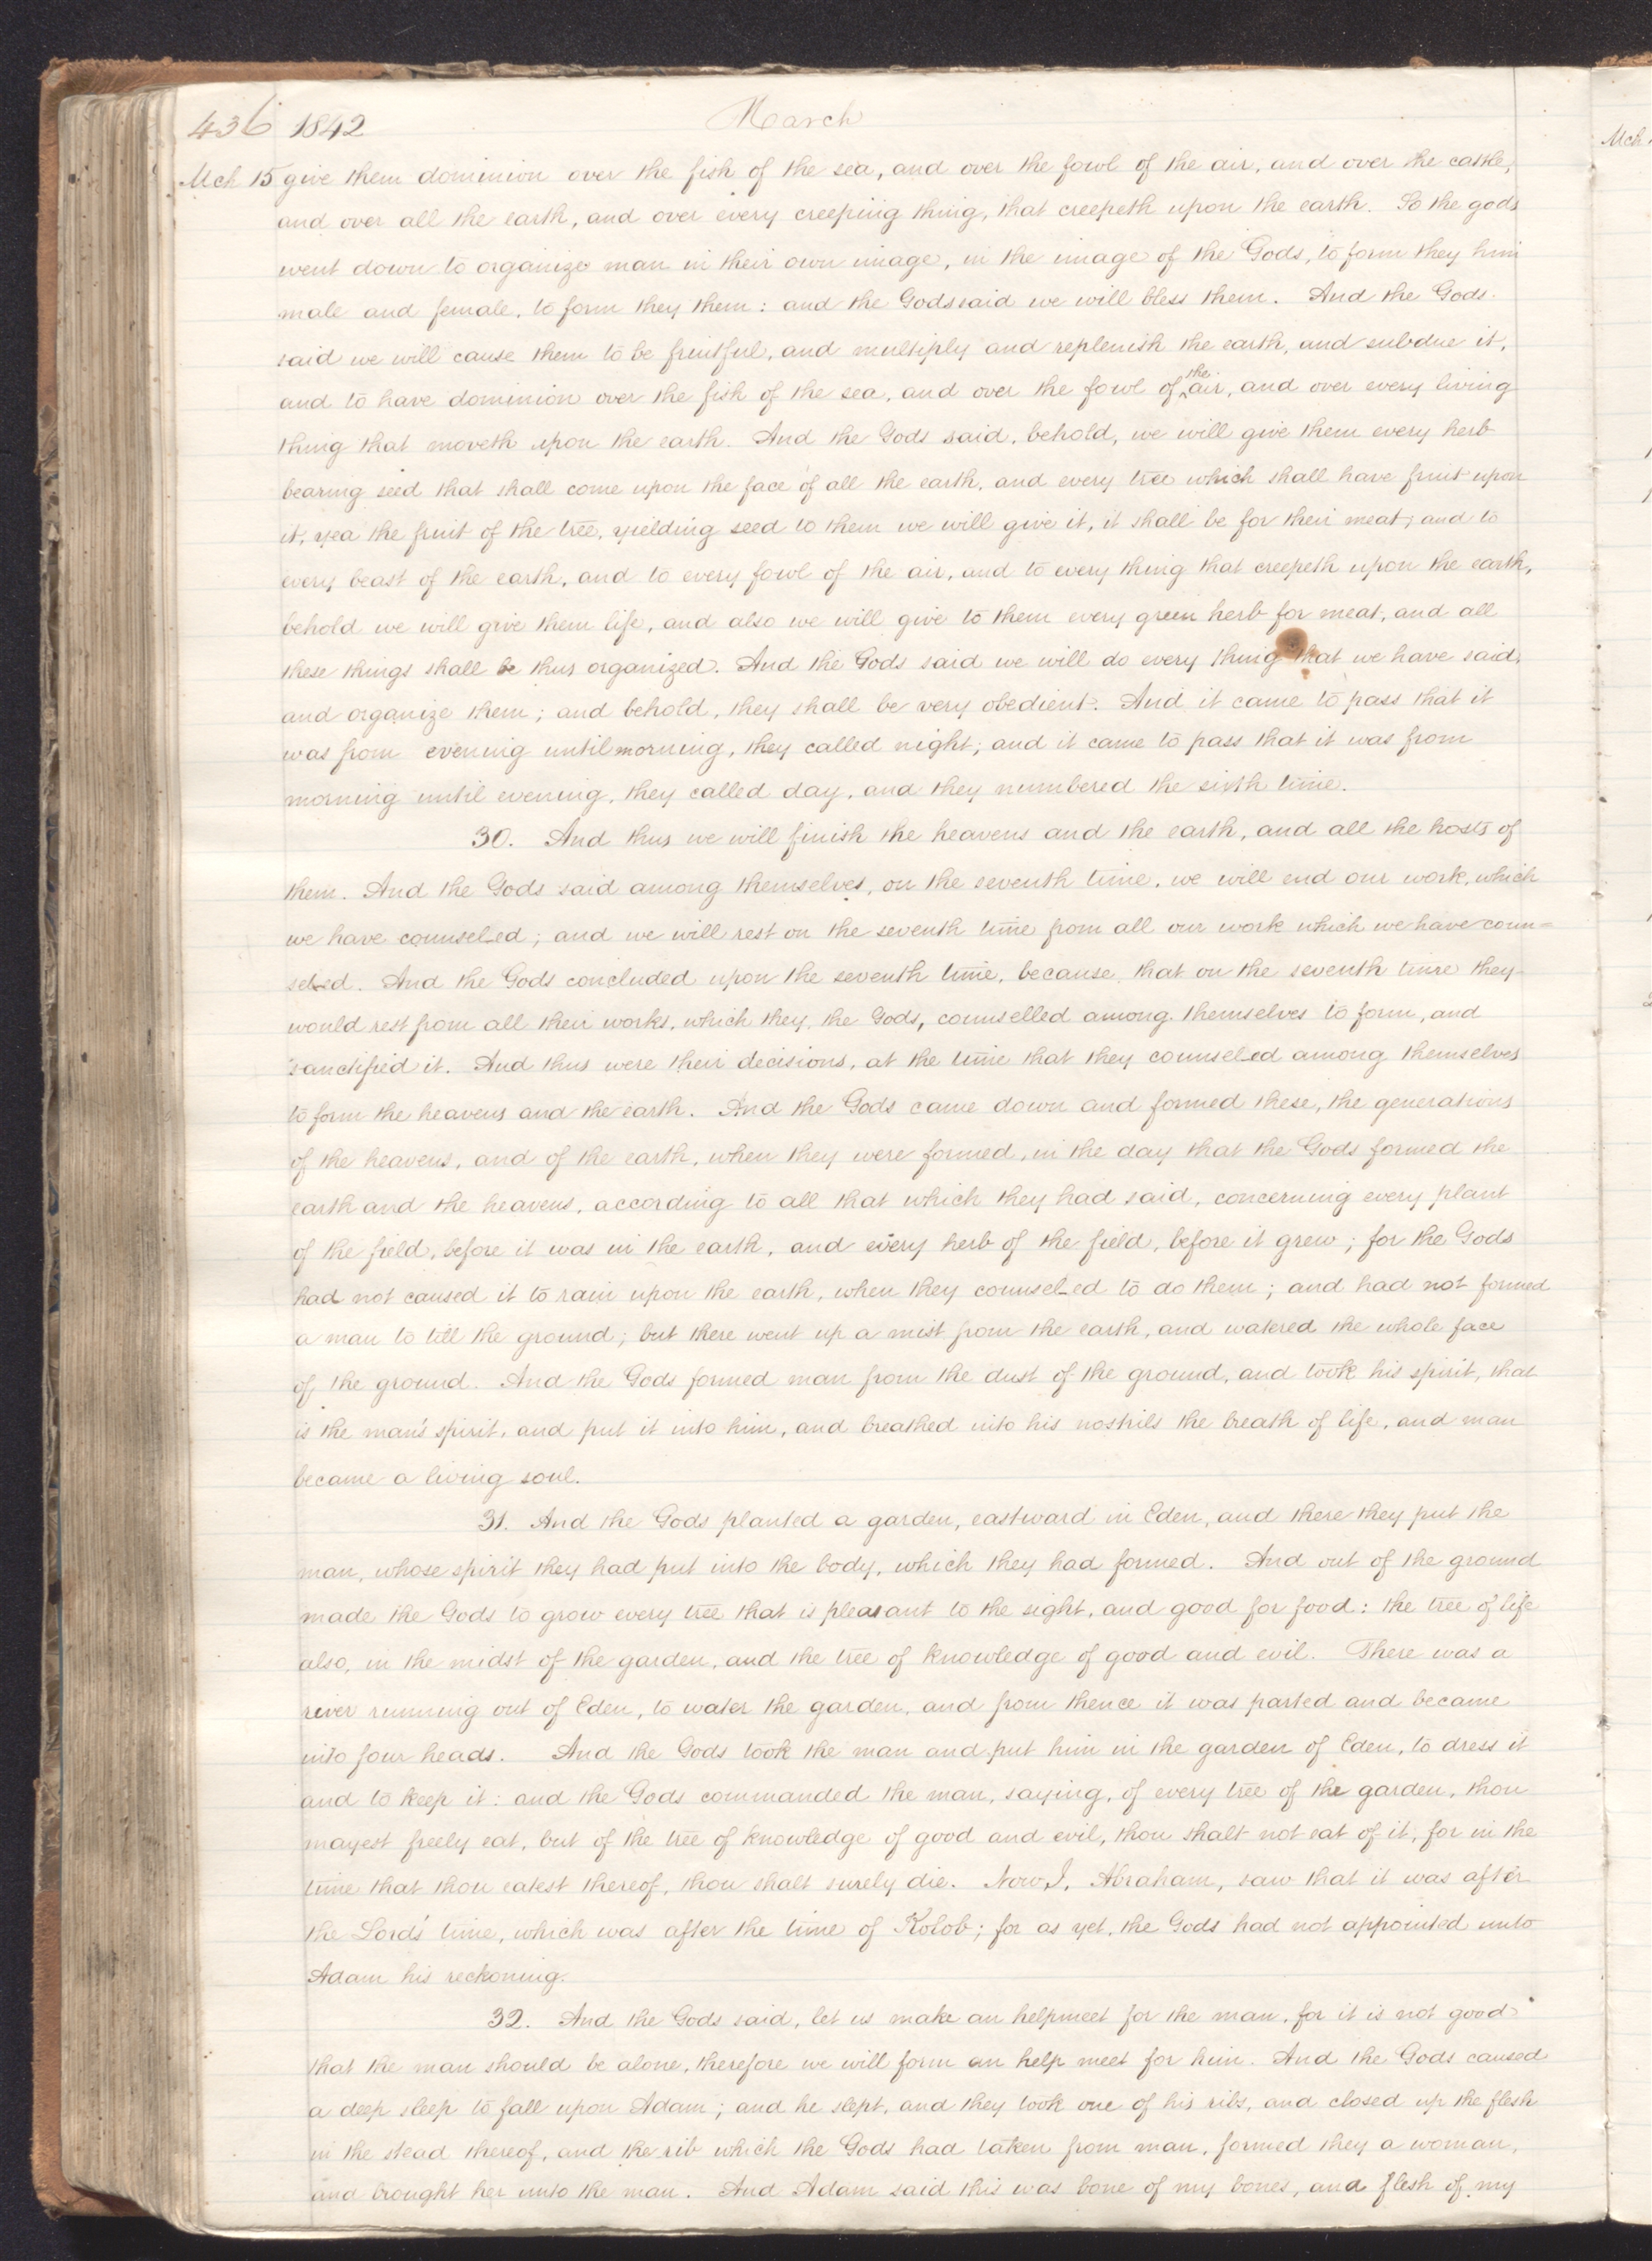 436 1842 March
Mch 15 give them dominion over the fish of the sea, and over the fowl of the air, and over the cattle,
and over all the earth, and over every creeping thing, that creepeth upon the earth. So the gods
went down to organize man in their own image, in the image of the Gods, to form they him
male and female, to form they them: and the Gods said we will bless them. And the Gods
said we will cause them to be fruitful, and multiply and replenish the earth, and subdue it,
and to have dominion over the fish of the sea, and over the fowl of the air, and over every living
thing that moveth upon the earth. And the Gods said, behold, we will give them every herb
bearing seed that shall come upon the face of all the earth, and every tree which shall have fruit upon
it, yea the fruit of the tree, yielding seed to them we will give it, it shall be for their meat; and to
every beast of the earth, and to every fowl of the air, and to every thing that creepeth upon the earth,
behold we will give them life, and also we will give to them every green herb for meat, and all
these things shall be thus organized. And the Gods said we will do every thing that we have said,
and organize them; and behold, they shall be very obedient. And it came to pass that it
was from evening until morning, they called night; and it came to pass that it was from
morning until evening, they called day, and they numbered the sixth time.
30. And thus we will finish the heavens and the earth, and all the hosts of
them. And the Gods said among themselves, on the seventh time, we will end our work, which
we have counseled; and we will rest on the seventh time from all our work which we have coun=
seled. And the Gods concluded upon the seventh time, because that on the seventh time they
would rest from all their works, which they, the Gods, counselled among themselves to form, and
sanctified it. And thus were their decisions, at the time that they counseled among themselves
to form the heavens and the earth. And the Gods came down and formed these, the generations
of the heavens, and of the earth, when they were formed, in the day that the Gods formed the
earth and the heavens, according to all that which they had said, concerning every plant
of the field, before it was in the earth, and every herb of the field, before it grew; for the Gods
had not caused it to rain upon the earth, when they counseled to do them; and had not formed
a man to till the ground; but there went up a mist from the earth, and watered the whole face
of the ground. And the Gods formed man from the dust of the ground, and took his spirit, that
is the man's spirit, and put it into him, and breathed into his nostrils the breath of life, and man
became a living soul.
31. And the Gods planted a garden, eastward in Eden, and there they put the
man, whose spirit they had put into the body, which they had formed. And out of the ground
made the Gods to grow every tree that is pleasant to the sight, and good for food: the tree of life
also, in the midst of the garden, and the tree of knowledge of good and evil. There was a
river running out of Eden, to water the garden, and from thence it was parted and became
into four heads. And the Gods took the man and put him in the garden of Eden, to dress it
and to keep it: and the Gods commanded the man, saying, of every tree of the garden, thou
mayest freely eat, but of the tree of knowledge of good and evil, thou shalt not eat of it, for in the
time that thou eatest thereof, thou shalt surely die. Now I, Abraham, saw that it was after
the Lord's time, which was after the time of Kolob; for as yet, the Gods had not appointed unto
Adam his reckoning.
32. And the Gods said, let us make an helpmeet for the man, for it is not good
that the man should be alone, therefore we will form an help meet for him. And the Gods caused
a deep sleep to fall upon Adam; and he slept, and they took one of his ribs, and closed up the flesh
in the stead thereof, and the rib which the Gods had taken from man, formed they a woman,
and brought her unto the man. And Adam said this was bone of my bones, and flesh of my
Mch